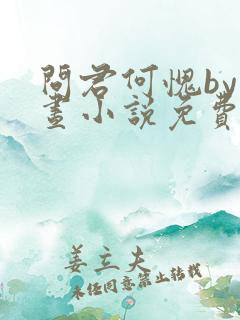 問君何愧by
畫小說免費
姜立夫
未经同意禁止转载